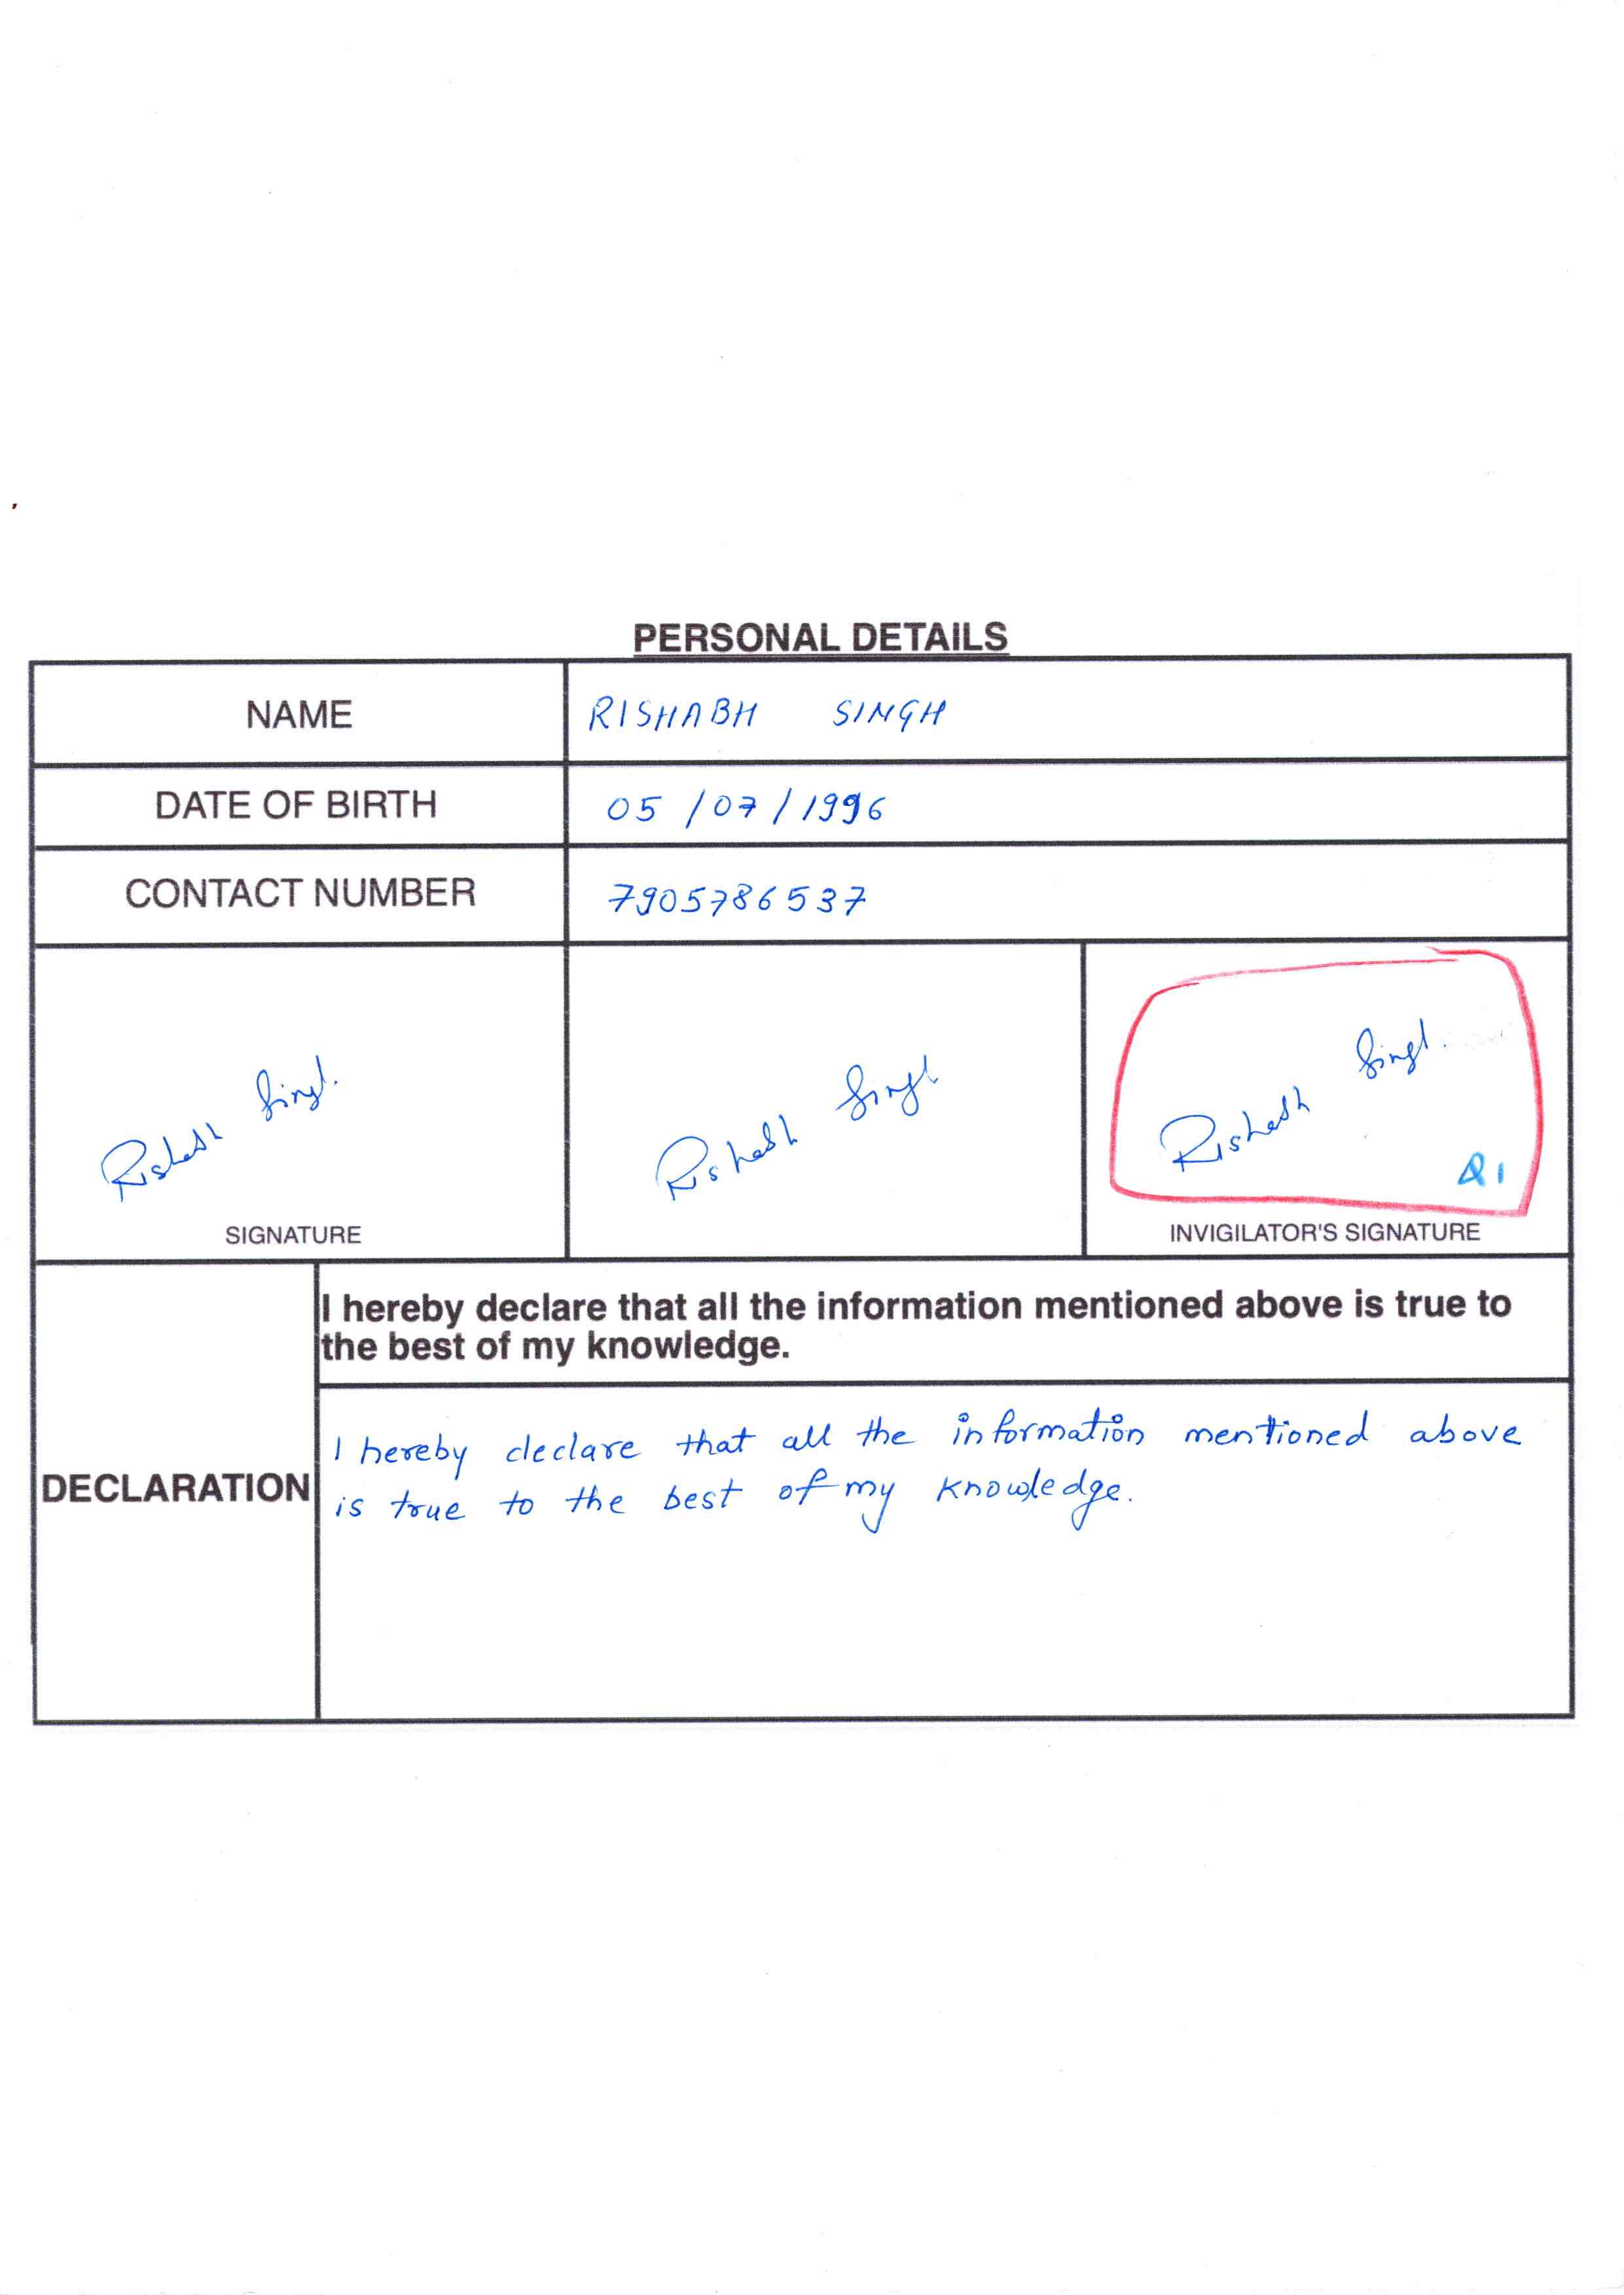 PERSONAL DETAILS
NAME RISHABH SINGH
DATE OF BIRTH 05/07/1996
CONTACT NUMBER 7905786537
Rishabh Singh.
Rishabh Singh
Rishabh Singh.
Q1
SIGNATURE
INVIGILATOR'S SIGNATURE
I hereby declare that all the information mentioned above is true to
the best of my knowledge.
DECLARATION
I hereby declare that all the information mentioned above
is true to the best of my knowledge.